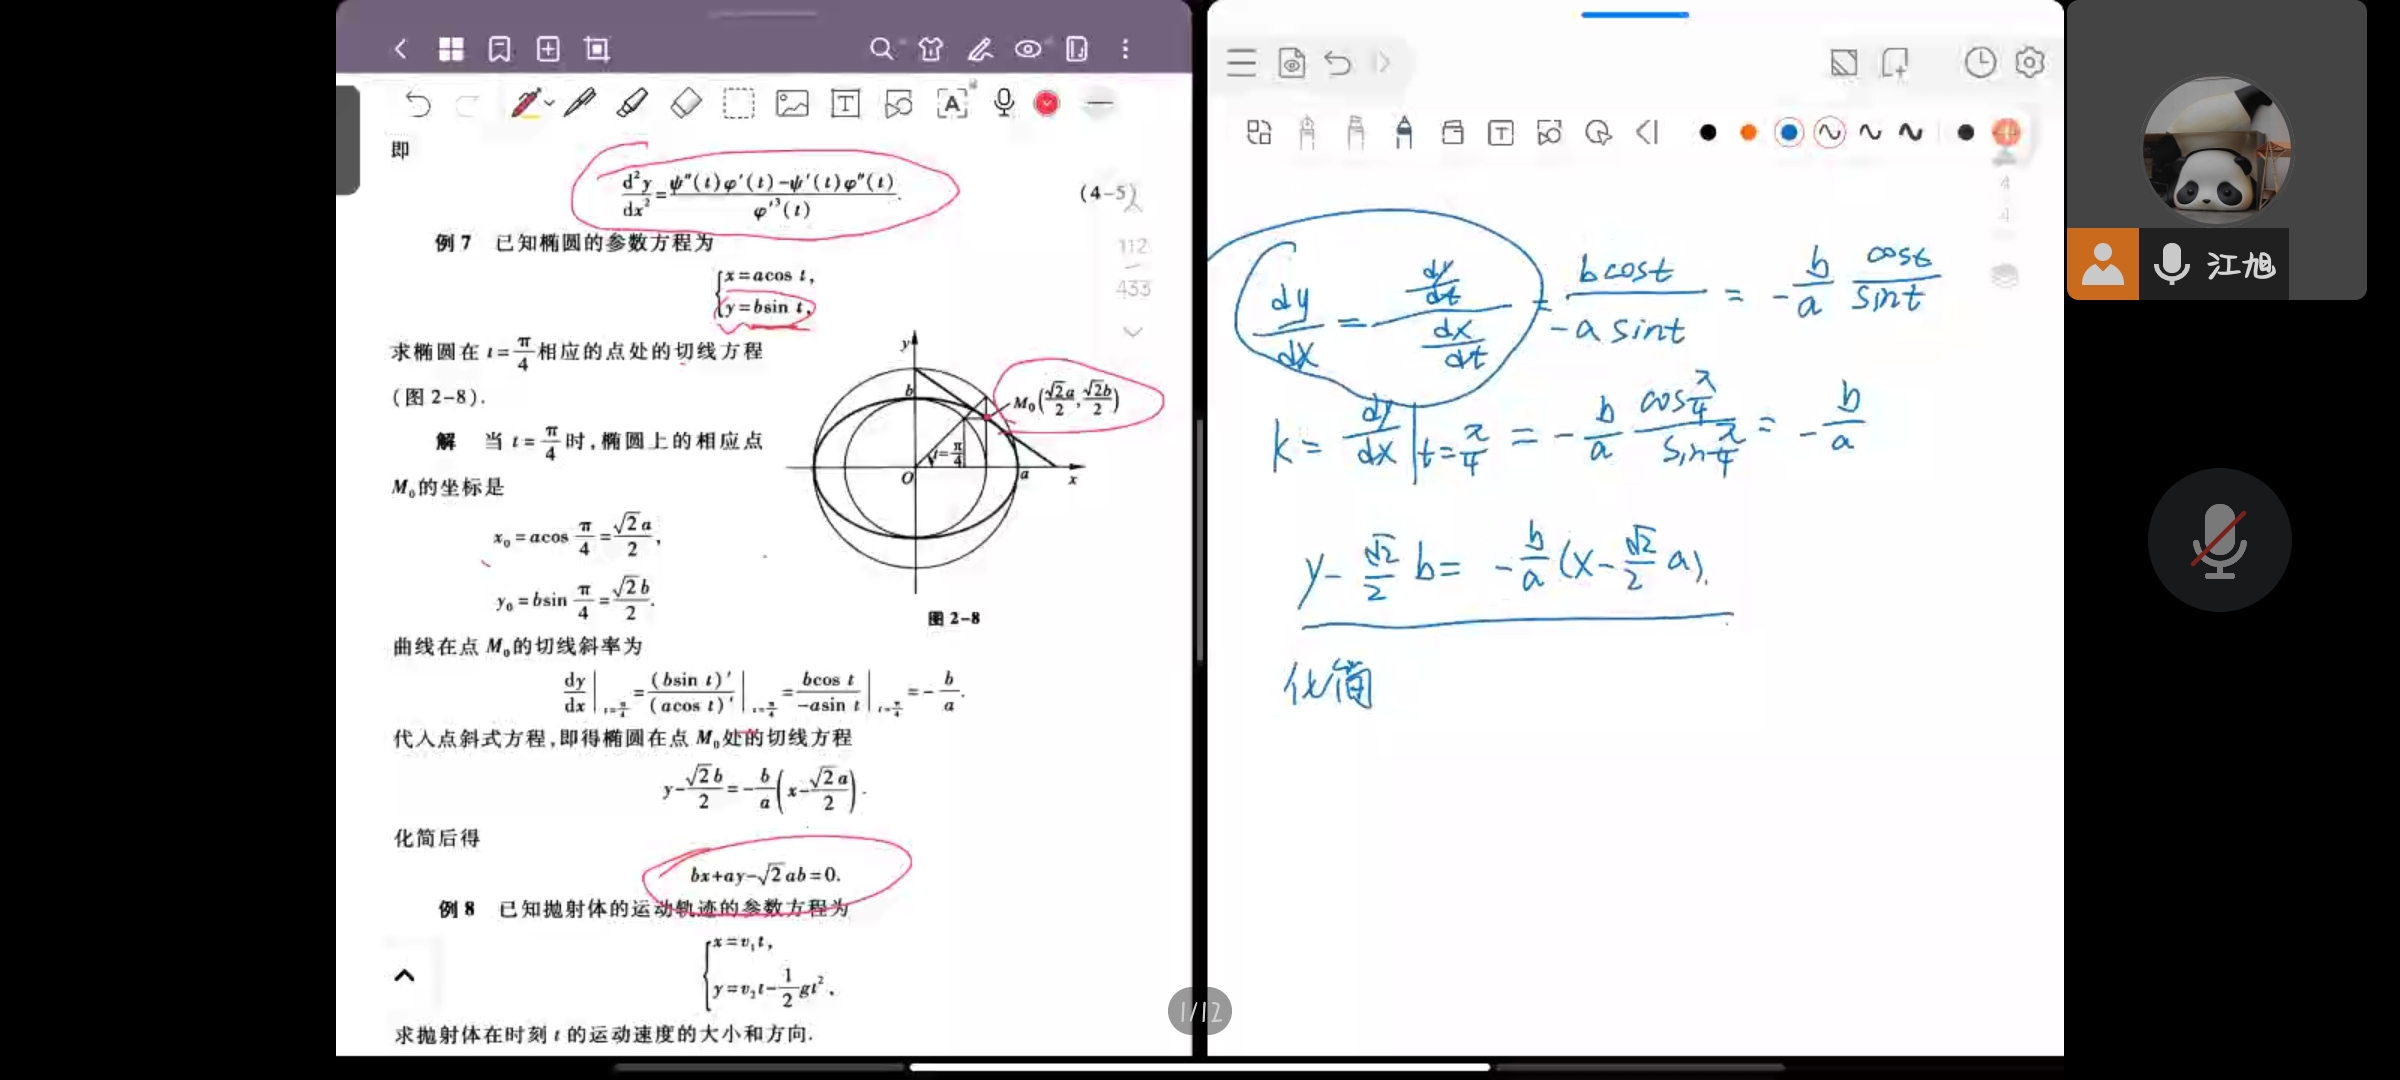 即
d²y/dx² = ψ″(t)φ′(t)−ψ′(t)φ″(t) / φ′³(t). (4-5)
112
433
例 7 已知椭圆的参数方程为
{x=acos t,
y=bsin t,
求椭圆在 t=π/4 相应的点处的切线方程
(图 2-8).
解 当 t=π/4 时,椭圆上的相应点
M₀的坐标是
x₀=acos π/4=√2a/2,
y₀=bsin π/4=√2b/2.
y
b
M₀(√2a/2,√2b/2)
t=π/4
O
a
x
图 2-8
曲线在点 M₀的切线斜率为
dy/dx|t=π/4 = (bsin t)′/(acos t)′|t=π/4 = bcos t/−asin t|t=π/4 = −b/a.
代入点斜式方程,即得椭圆在点 M₀处的切线方程
y−√2b/2=−b/a(x−√2a/2).
化简后得
bx+ay−√2ab=0.
例 8 已知抛射体的运动轨迹的参数方程为
{x=v₁t,
y=v₂t−1/2gt².
求抛射体在时刻 t 的运动速度的大小和方向.
1/12
4
4
dy/dx = (dy/dt)/(dx/dt) = bcost/−asint = −b/a cost/sint
k= dy/dx|t=π/4 = −b/a cosπ/4/sinπ/4 = −b/a
y−√2/2 b= −b/a(x−√2/2 a).
化简
江旭